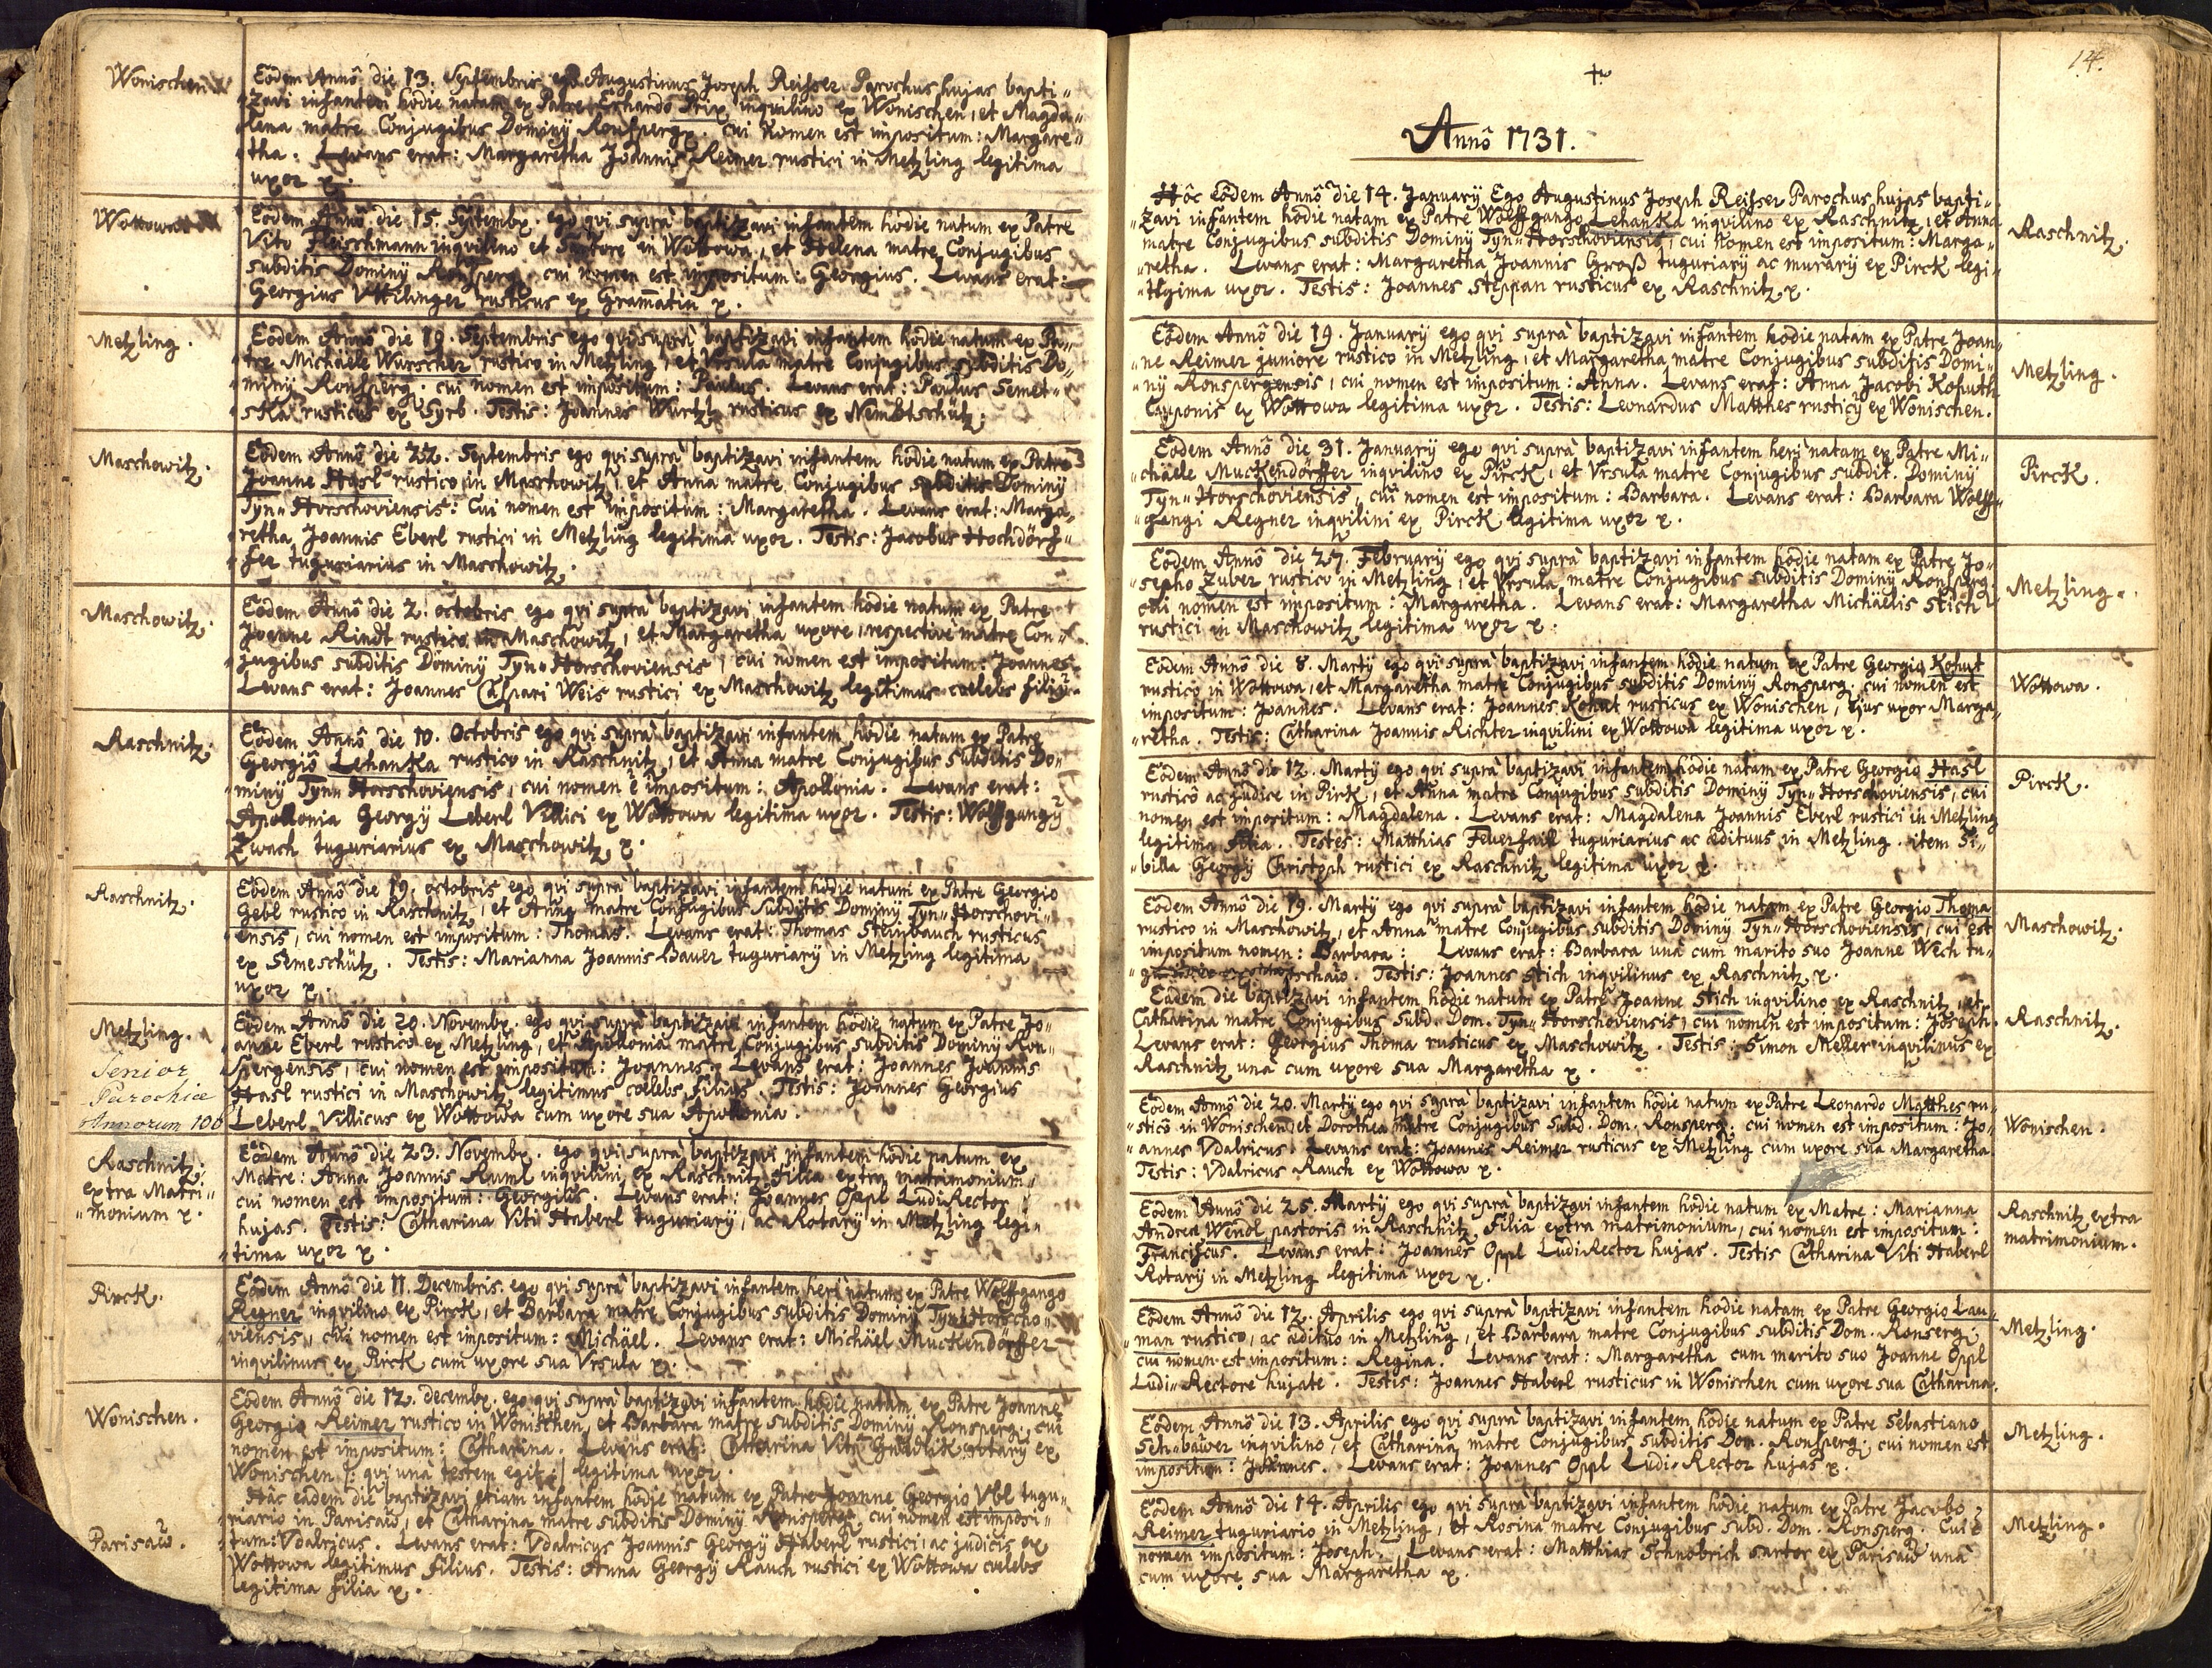 Wonischen
Eodem Annô die 13. Septembris ego Augustinus Joseph Reisser Parochus hujas bapti„
„zavi infantem hodie natam ex Patre Erhardo Prix inqvilino ex Wonischen, et Magda„
„lena matre Conjugibus Dominÿ Ronsperg. cui nomen est impositum: Margare„
„tha. Levans erat: Margaretha Joannis Reimer rustici in Metzling legitima
uxor x.
Wottowa
Eodem Annô die 15. Septembr. ego qvi suprà baptizavi infantem hodie natum ex Patre
Vito Fleischmann inqvilino et Sartore in Wottowa, et Helena matre Conjugibus
subditis Dominÿ Ronsperg. cui nomen est impositum: Georgius. Levans erat:
Georgius Vttilinger rusticus ex Gramatin x.
Metzling.
Eodem Annô die 19. Septembris ego qvi suprà baptizavi infantem hodie natum ex Pa„
„tre Michaële Wurscher rustico in Metzling, et Vrsula matre Conjugibus subditis Do„
„minÿ Ronsperg. cui nomen est impositum: Paulus. Levans erat: Paulus Semet„
„ska rusticus ex Syrb. Testis: Joannes Wurtzl rusticus ex Nembtschütz.
Maschowitz.
Eodem Annô die 22. Septembris ego qvi suprà baptizavi infantem hodie natum ex Patre
Joanne Hasl rustico in Maschowitz, et Anna matre Conjugibus subditis Dominÿ
Tyn„Horschoviensis: Cui nomen est impositum: Margaretha. Levans erat: Marga„
„retha Joannis Eberl rustici in Metzling legitima uxor. Testis: Jacobus Hochdörf„
„fer tuguriarius in Maschowitz.
Maschowitz.
Eodem Annô die 2. octobris ego qvi suprà baptizavi infantem hodie natum ex Patre
Joanne Rindt rustico in Maschowitz, et Margaretha uxore, respectivè matre Con„
„jugibus subditis Dominÿ Tyn„Horschoviensis, cui nomen est impositum: Joannes
Levans erat: Joannes Caspari Weis rustici ex Maschowitz legitimus coelebs filiÿ.
Raschnitz.
Eodem Annô die 10. Octobris ego qvi suprà baptizavi infantem hodie natam ex Patre
Georgiô Lehanka rustico in Raschnitz, et Anna matre Conjugibus subditis Do„
„minÿ Tyn„Horschoviensis, cui nomen ê impositum: Apollonia. Levans erat:
Apollonia Georgÿ Leberl Villici ex Wottowa legitima uxor. Testis: Wolffgangÿ
Zwach tuguriarius ex Maschowitz x.
Raschnitz.
Eodem Annô die 19. octobris ego qvi suprà baptizavi infantem hodie natum ex Patre Georgio
Gebl rustico in Raschnitz, et Anna matre Conjugibus Subditis Dominÿ Tyn„Horschovi„
„ensis, cui nomen est impositum: Thomas. Levans erat: Thomas Steinbauch rusticus
ex Semeschütz. Testis: Marianna Joannis Bauer tuguriarÿ in Metzling legitima
uxor x.
Metzling.
Senior
Parochiæ
Annorum 100
Eodem Annô die 20. Novembr. ego qvi suprà baptizavi infantem hodie natum ex Patre Jo„
„anne Eberl rustico ex Metzling, et Apollonia matre Conjugibus subditis Dominÿ Ron„
„spergensis, cui nomen est impositum: Joannes. Levans erat: Joannes Joannis
Hasl rustici in Maschowitz legitimus coelebs filius. Testis: Joannes Georgius
Leberl Villicus ex Wottowa cum uxore sua Apollonia.
Raschnitz.
extra Matri„
„monium x.
Eodem Annô die 23. Novembr. ego qvi suprà baptizavi infantem hodie natum ex
Matre: Anna Joannis Ruml inqvilini ex Raschnitz Filia extra matrimonium„
cui nomen est impositum: Georgius. Levans erat: Joannes Oppl Ludi Rector
hujas. Testis: Catharina Viti Haberl tuguriarÿ, ac Rotarÿ in Metzling legi„
„tima uxor x.
Pirck.
Eodem Annô die 11. Decembris ego qvi suprà baptizavi infantem heri natum ex Patre Wolffgango
Regner inqvilino ex Pirck, et Barbara matre Conjugibus subditis Dominÿ Tyn„Horscho„
„viensis, cui nomen est impositum: Michäel. Levans erat: Michäel Muckendörffer
inqvilinus ex Pirck cum uxore sua Vrsula x.
Wonischen.
Eodem Annô die 12. decembr. ego qvi suprà baptizavi infantem hodie natam ex Patre Joanne
Georgio Reimer rustico in Wonischen, et Barbara matre subditis Dominÿ Ronsperg. cui
nomen est impositum: Catharina. Levans erat: Catharina Viti Gnadlik rotarÿ ex
Wonischen /: qvi unà testem egit :/ legitima uxor.
Parisaw.
Hâc eâdem die baptizavi etiam infantem hodie natum ex Patre Joanne Georgio Vbl tugu„
„riario in Parisaw, et Catharina matre subditis Dominÿ Ronsperg. cui nomen est imposi„
„tum: Vdalricus. Levans erat: Vdalricus Joannis Georgÿ Haberl rustici, ac judicis ex
Wottowa legitimus filius. Testis: Anna Georgÿ Rauch rustici ex Wottowa coelebs
legitima filia x.
14.
Annô 1731.
Hôc Eôdem Annô die 14. Januarÿ Ego Augustinus Joseph Reisser Parochus hujas bapti„
„zavi infantem hodie natam ex Patre Wolffgango Lehanka inqvilino ex Raschnitz, et Anna
matre Conjugibus subditis Dominÿ Tyn„Horschoviensis, cui nomen est impositum: Marga„
„retha. Levans erat: Margaretha Joannis Groß tuguriarÿ ac murarÿ ex Pirck legi„
„tigima uxor. Testis: Joannes Steppan rusticus ex Raschnitz x.
Raschnitz.
Eodem Annô die 19. Januarÿ ego qvi suprà baptizavi infantem hodie natam ex Patre Joan„
„ne Reimer juniore rustico in Metzling, et Margaretha matre Conjugibus subditis Domi„
„nÿ Ronspergensis, cui nomen est impositum: Anna. Levans erat: Anna Jacobi Kohuth
Cauponis ex Wottowa legitima uxor. Testis: Leonardus Matthes rusticÿ ex Wonischen.
Metzling.
Eodem Annô die 31. Januarÿ ego qvi suprà baptizavi infantem heri natam ex Patre Mi„
„chäele Muckendörffer inqvilino ex Pirck, et Vrsula matre Conjugibus subdit. Dominÿ
Tyn„Horschoviensis, cui nomen est impositum: Barbara. Levans erat: Barbara Wolff„
„gangi Regner inqvilini ex Pirck legitima uxor x.
Pirck.
Eodem Annô die 27. Februarÿ ego qvi suprà baptizavi infantem hodie natam ex Patre Jo„
„sepho Zuber rustico in Metzling, et Vrsula matre Conjugibus subditis Dominÿ Ronsperg.
cui nomen est impositum: Margaretha. Levans erat: Margaretha Michaëlis Stich
rustici in Maschowitz legitima uxor x.
Metzling.
Eodem Annô die 8. Martÿ ego qvi suprà baptizavi infantem hodie natum ex Patre Georgio Kohut
rustico in Wottowa, et Margaretha matre Conjugibus subditis Dominÿ Ronsperg. cui nomen est
impositum: Joannes. Levans erat: Joannes Kohut rusticus ex Wonischen, ejus uxor Marga„
„retha. Testis: Catharina Joannis Richter inqvilini ex Wottowa legitima uxor x.
Wottowa.
Eodem Annô die 12. Martÿ ego qvi suprà baptizavi infantem hodie natam ex Patre Georgio Hasl
rusticô ac judice in Pirk, et Anna matre Conjugibus subditis Dominÿ Tyn„Horschoviensis, cui
nomen est impositum: Magdalena. Levans erat: Magdalena Joannis Eberl rustici in Metzling
legitima filia. Testes: Matthias Feuerfail tuguriarius ac ædituus in Metzling. item Si„
„billa Georgÿ Christoph rustici ex Raschnitz legitima uxor x.
Pirck.
Eodem Annô die 19. Martÿ ego qvi suprà baptizavi infantem hodie natam ex Patre Georgio Thoma
rustico in Maschowitz, et Anna matre Conjugibus subditis Dominÿ Tyn„Horschoviensis, cui est
impositum nomen: Barbara: Levans erat: Barbara unà cum marito suo Joanne Wech tu„
Testis: Joannes Stich inqvilinus ex Raschnitz x.
Maschowitz.
Eâdem die baptizavi infantem hodie natum ex Patre Joanne Stich inqvilino ex Raschnitz, et
Catharina matre Conjugibus subd. Dom. Tyn„Horschoviensis, cui nomen est impositum: Joseph.
Levans erat: Georgius Thoma rusticus ex Maschowitz. Testis: Simon Meller inqvilinus ex
Raschnitz unà cum uxore sua Margaretha x.
Raschnitz.
Eodem Annô die 20. Martÿ ego qvi suprà baptizavi infantem hodie natum ex Patre Leonardo Matthes ru„
„sticô in Wonischen, et Dorothea matre Conjugibus subd. Dom. Ronsperg. cui nomen est impositum: Jo„
„annes Vdalricus. Levans erat: Joannes Reimer rusticus ex Metzling cum uxore sua Margaretha
Testis: Vdalricus Rauch ex Wottowa x.
Wonischen.
Eodem Annô die 25. Martÿ ego qvi suprà baptizavi infantem hodie natum ex Matre: Marianna
Andreæ Wendl pastoris in Raschnitz Filia extra matrimonium, cui nomen est impositum:
Franciscus. Levans erat: Joannes Oppl Ludi Rector hujas. Testis Catharina Viti Haberl
Rotarÿ in Metzling legitima uxor x.
Raschnitz extra
matrimonium.
Eodem Annô die 12. Aprilis ego qvi suprà baptizavi infantem hodie natam ex Patre Georgio Lau„
„man rustico, ac ædituo in Metzling, et Barbara matre Conjugibus subditis Dom. Ronserg.
cui nomen est impositum: Regina. Levans erat: Margaretha cum marito suo Joanne Oppl
Ludi„Rectore hujate. Testis: Joannes Haberl rusticus in Wonischen cum uxore sua Catharina.
Metzling.
Eodem Annô die 13. Aprilis ego qvi suprà baptizavi infantem hodie natum ex Patre Sebastiano
Schabawer inqvilino, et Catharina matre Conjugibus subditis Dom. Ronsperg. cui nomen est
impositum: Joannes. Levans erat: Joannes Oppl Ludi„Rector hujas x.
Metzling.
Eodem Annô die 14. Aprilis ego qvi suprà baptizavi infantem hodie natum ex Patre Jacobo
Reimer tuguriario in Metzling, et Rosina matre Conjugibus subd. Dom. Ronsperg. Cui
nomen impositum: Joseph. Levans erat: Matthias Schnobrich sartor ex Parisaw unà
cum uxore sua Margaretha x.
Metzling.